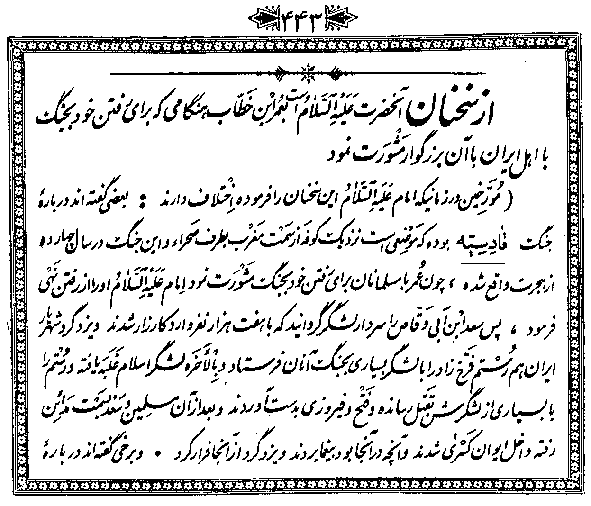 ۴۴۳
از سخنان آنحضرت عَلَیْهِ السَّلامُ است بعُمَر ابْن خَطَّاب هنگامی که برای رفتن خود بجنگ
با اهل ایران با آن بزرگوار مَشْوَرَت نمود
( مُوَرِّخین در زمانیکه امام عَلَیْهِ السَّلامُ این سخنان را فرموده اِخْتلاف دارند : بعضی گفته‌اند دربارهٔ
جنگ قادِسِیَّه بوده که مَوْضِعی است نزدیک کوفه از سَمْت مَغْرِب بطرف صحراء و این جنگ در سال چهارده
از هجرت واقع شده ، چون عُمَر با مسلمانان برای رفتن خود بجنگ مَشْوَرَت نمود امام عَلَیْهِ السَّلامُ او را از رفتن نَهْی
فرمود ، پس سعد ابْن اَبی وَقّاص را سردار لشگر گردانید که با هفت هزار نفر وارد کارزار شدند و یزدگرد شهریار
ایران هم رُسْتَم فَرّخ زاد را با لشگر بسیاری بجنگ آنان فرستاد و بِالْأَخَره لشگر اسلام غَلَبه یافته و رُسْتَم را
با بسیاری از لشگرش بقتل رسانده و فتح و فیروزی بدست آوردند و بعد از آن مسلمین و سَعْد بسَمْت مَدائن
رفته داخل ایوان کَسْری شدند و آنچه در آنجا بود بیغما بردند و یزدگرد از آنجا فرار کرد . و برخی گفته‌اند دربارهٔ